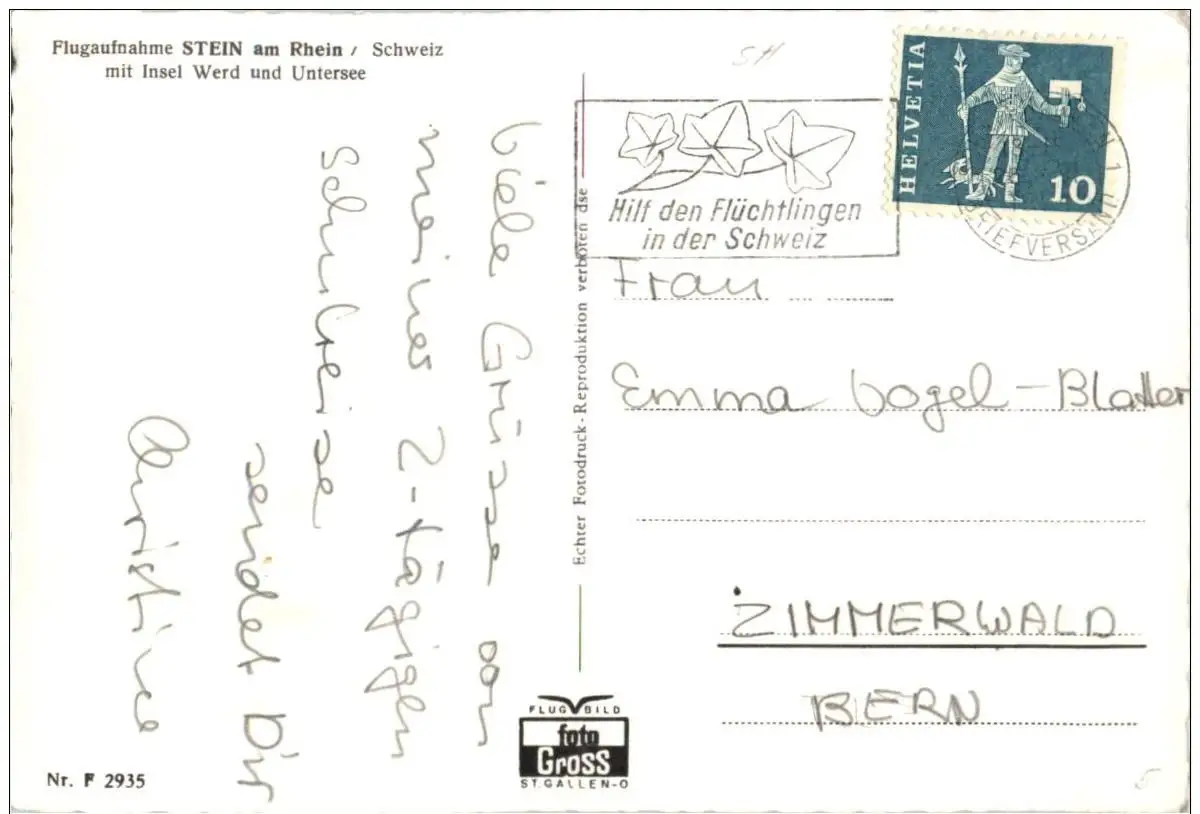 Flugaufnahme STEIN am Rhein / Schweiz
mit Insel Werd und Untersee
Viele Grüsse von
meiner 2-tägigen
Schulreise
sendet Dir
Christine
Nr. F 2935
Echter Fotodruck-Reproduktion verboten dse
FLUG BILD
foto
Gross
ST. GALLEN-O
SH
Hilf den Flüchtlingen
in der Schweiz
HELVETIA
10
BRIEFVERSAND
Frau
Emma Vogel-Blatter
ZIMMERWALD
BERN